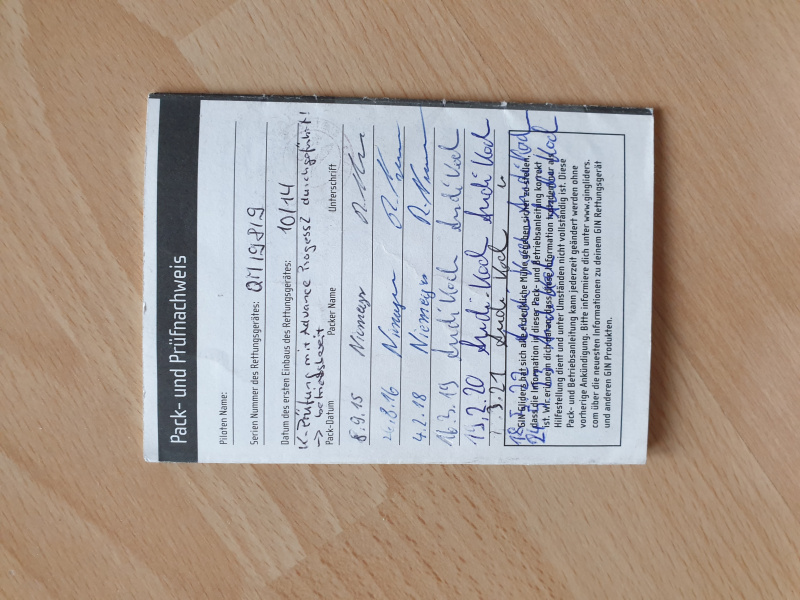 Pack- und Prüfnachweis
Piloten Name:
Serien Nummer des Rettungsgerätes:
Datum des ersten Einbaus des Rettungsgerätes: 10/14
K-Prüfung mit Advance Progress2 durchgeführt!
-> betriebsbereit
Pack-Datum Packer Name Unterschrift
8.9.15 Niemeyer
26.8.16 Niemeyer
4.2.18 Niemeyer
16.3.19 Andi Koch Andi Koch
15.2.20 Andi Koch Andi Koch
3.21 Andi Koch
GIN Gliders hat sich alle erdenkliche Mühe gegeben sicher zu stellen,
dass die Information in dieser Pack- und Betriebsanleitung korrekt
ist. Wir erinnern dich daran, dass diese Information nur als
Hilfestellung dient und unter Umständen nicht vollständig ist. Diese
Pack- und Betriebsanleitung kann jederzeit geändert werden ohne
vorherige Ankündigung. Bitte informiere dich unter www.gingliders.
com über die neuesten Informationen zu deinem GIN Rettungsgerät
und anderen GIN Produkten.